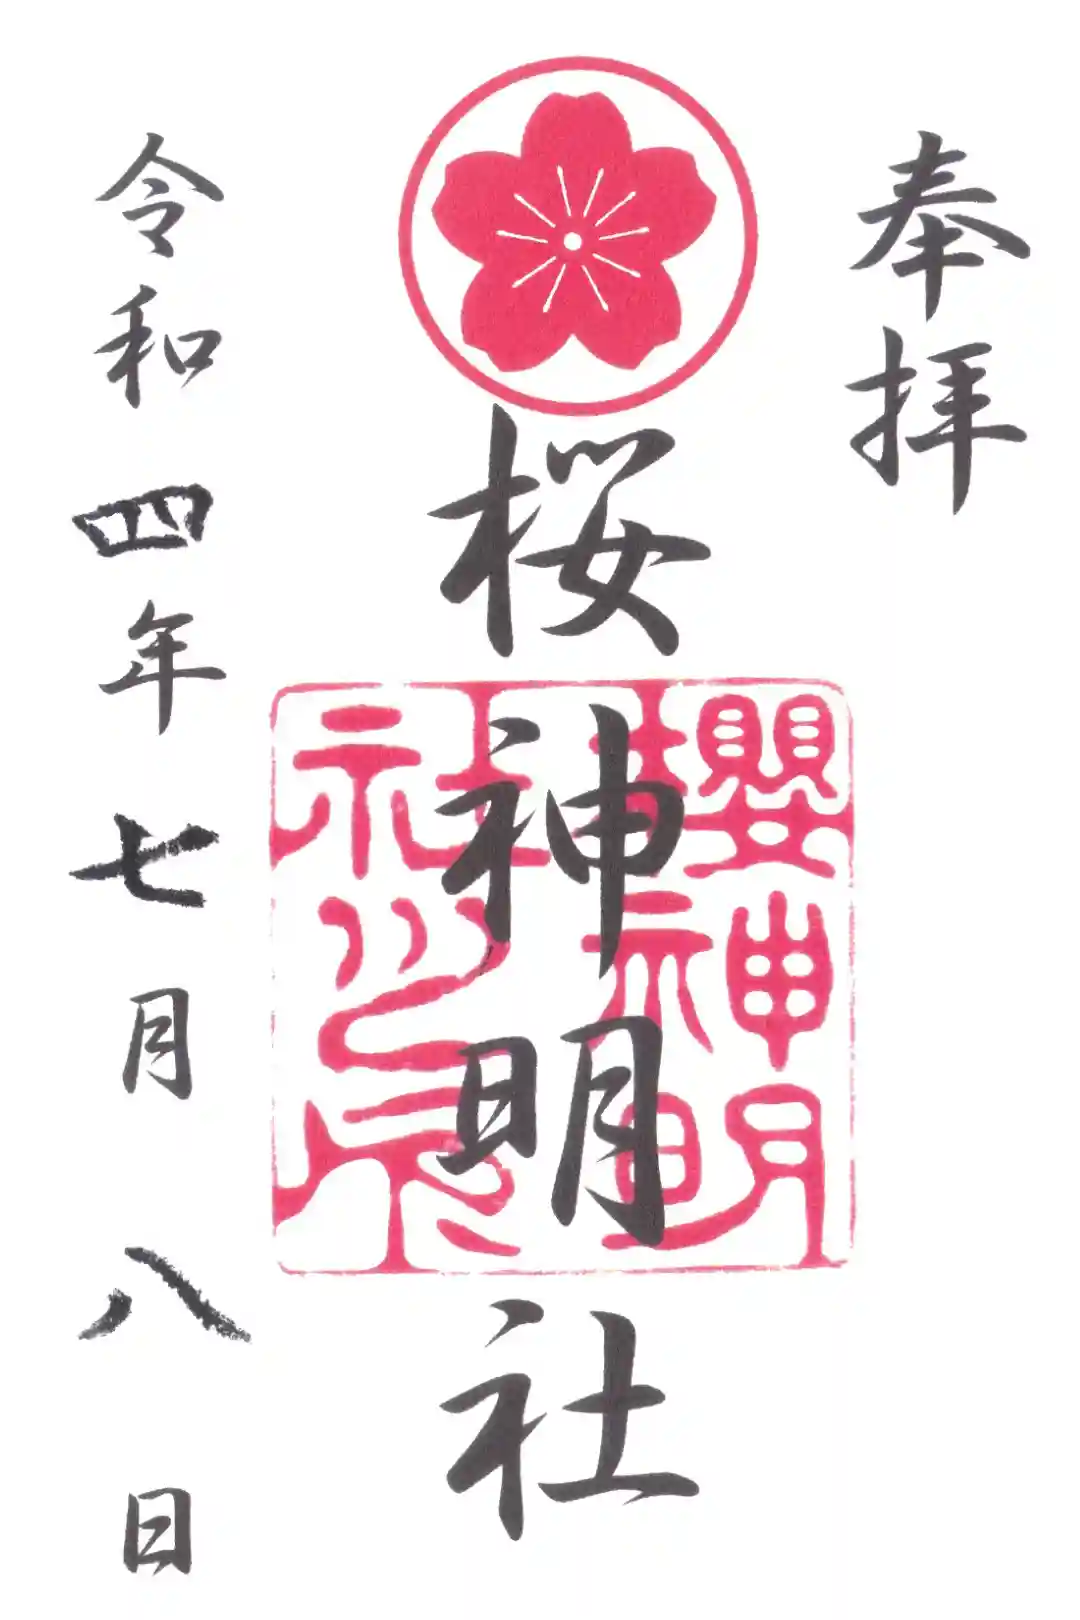 奉拝
桜神明社
櫻神明社神社之印
令和四年七月八日